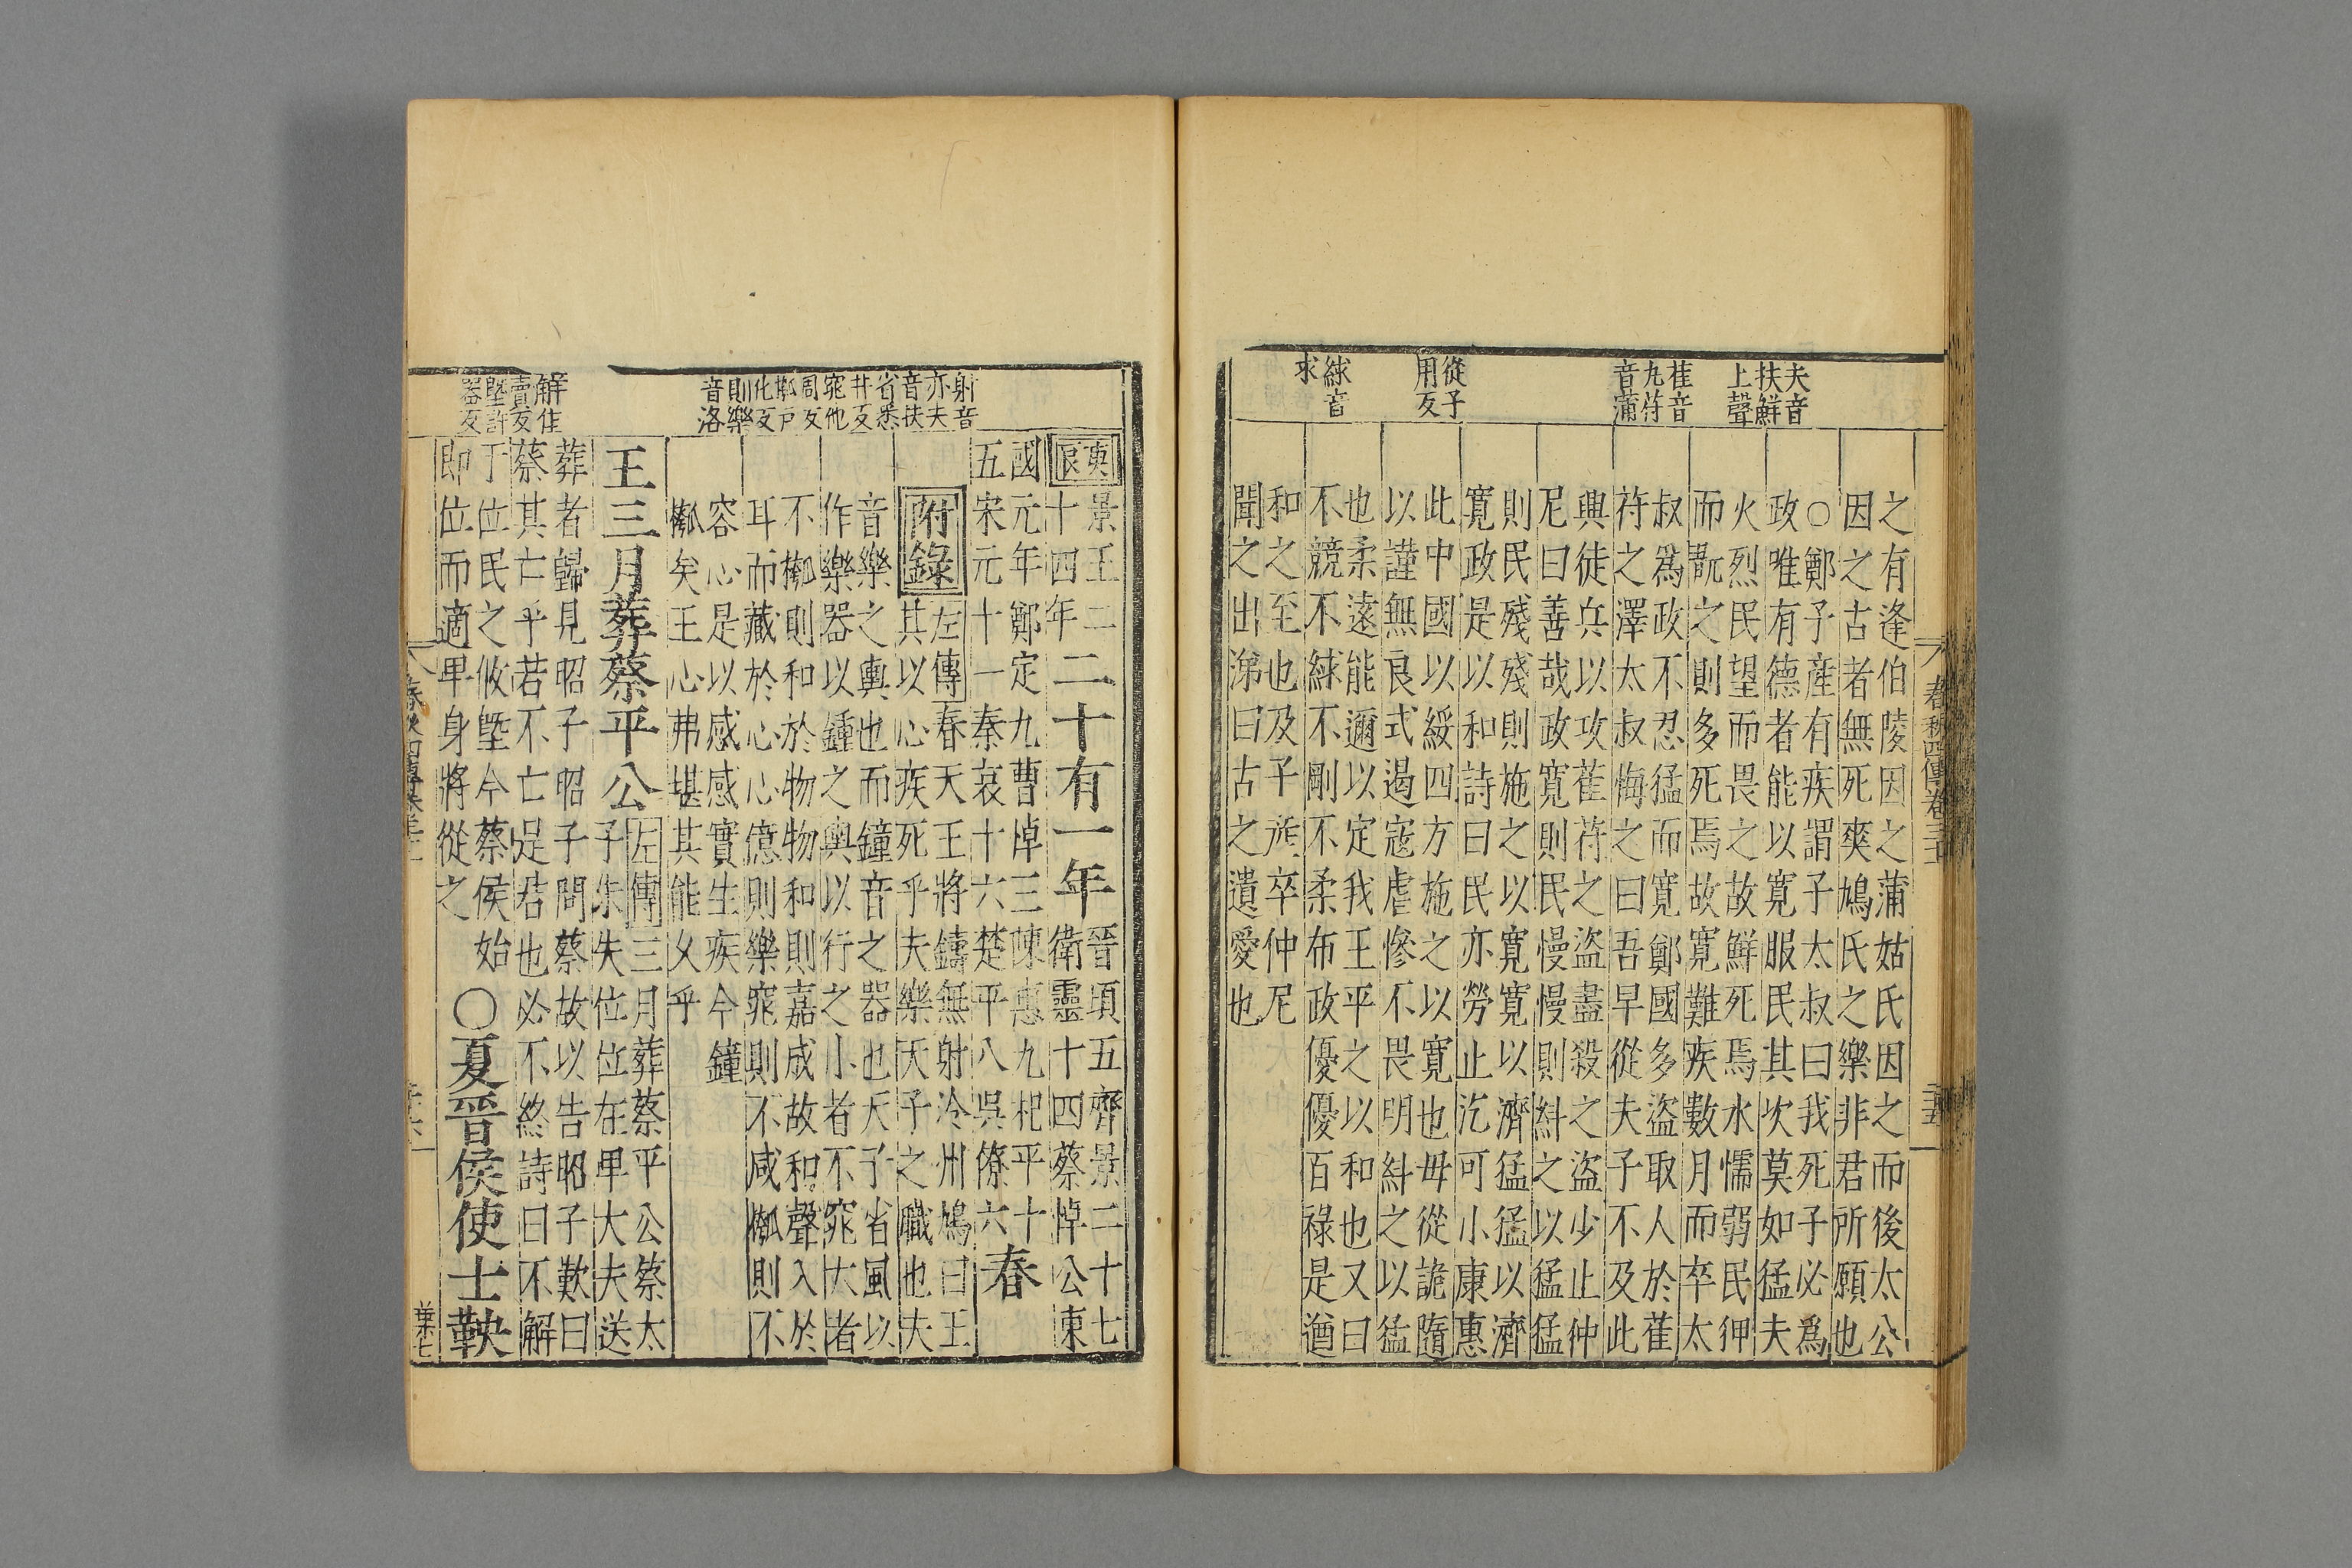 春秋四傳卷三十
夫音
扶鮮
上聲
萑音
九苻
音蒲
從子
用反
絿音
求
之有逢伯陵因之蒲姑氏因之而後太公
因之古者無死爽鳩氏之樂非君所願也
○鄭子產有疾謂子太叔曰我死子必爲
政唯有德者能以寬服民其次莫如猛夫
火烈民望而畏之故鮮死焉水懦弱民狎
而翫之則多死焉故寬難疾數月而卒太
叔爲政不忍猛而寬鄭國多盜取人於萑
苻之澤太叔悔之曰吾早從夫子不及此
興徒兵以攻萑苻之盜盡殺之盜少止仲
尼曰善哉政寬則民慢慢則糾之以猛猛
則民殘殘則施之以寬寬以濟猛猛以濟
寬政是以和詩曰民亦勞止汔可小康惠
此中國以綏四方施之以寬也毋從詭隨
以謹無良式遏寇虐慘不畏明糾之以猛
也柔遠能邇以定我王平之以和也又曰
不競不絿不剛不柔布政優優百祿是遒
和之至也及子產卒仲尼
聞之出涕曰古之遺愛也
射音
亦夫
音扶
省悉
井反
窕他
周反
槬戶
化反
則樂
音洛
解佳
賣反
墍許
器反
景王二
十四年
二十有一年
晉頃五齊景二十七
衛靈十四蔡悼公東
國元年鄭定九曹悼三陳惠九杞平十
五宋元十一秦哀十六楚平八吳僚六
春
附錄
左傳春天王將鑄無射泠州鳩曰王
其以心疾死乎夫樂天子之職也夫
音樂之輿也而鐘音之器也天子省風以
作樂器以鍾之輿以行之小者不窕大者
不槬則和於物物和則嘉成故和聲入於
耳而藏於心心億則樂窕則不咸槬則不
容心是以感感實生疾今鐘
槬矣王心弗堪其能久乎
王三月葬蔡平公
左傳三月葬蔡平公蔡太
子朱失位位在卑大夫送
葬者歸見昭子昭子問蔡故以告昭子歎曰
蔡其亡乎若不亡是君也必不終詩曰不解
于位民之攸墍今蔡侯始
即位而適卑身將從之
○夏晉侯使士鞅
葉七